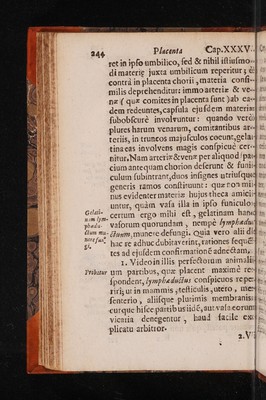 244 Placenta Cap.XXXV.
ret in ipso umbilico, sed & nihil istiusmo-
di materię juxta umbilicum reperitur; è
contrà in placenta chorii, materia consi-
milis deprehenditur: immo arteriæ & ve-
næ (quæ comites in placenta sunt) ab ea-
dem redeuntes, capsula ejusdem materiæ
subobscurè involvuntur: quando verò
plures harum venarum, comitantibus ar-
teriis, in truncos majusculos coeunt, gela-
tina eas involvens magis conspicuè cer-
nitur. Nam arteriæ & venæ per aliquod spa-
cium antequam chorion deserunt & funi-
culum subintrant, duos insignes utriusque
generis ramos constituunt: quæ non mi-
nus evidenter materiæ hujus theca amici-
untur, quàm vasa illa in ipso funiculo
Gelati-
nam lym-
phædu-
ctum mu-
nere fun-
gi.
certum ergo mihi est, gelatinam hanc
vasorum quorundam, nempè lymphædu-
ctuum, munere defungi. quia vero alii de
hac re adhuc dubitaverint, rationes sequē-
tes ad ejusdem confirmationē adnectam.
Probatur
1. Video in illis perfectiorum animali-
um partibus, quæ placent maximè re-
spondent, lymphæductus conspicuos repe-
riri; ut in mammis, testiculis, utero, me-
senterio, aliisque plurimis membranis:
cur quę hisce partibus iidē, aut vasa eorum
vicaria denegentur, haud facile ex-
plicatu arbitror.